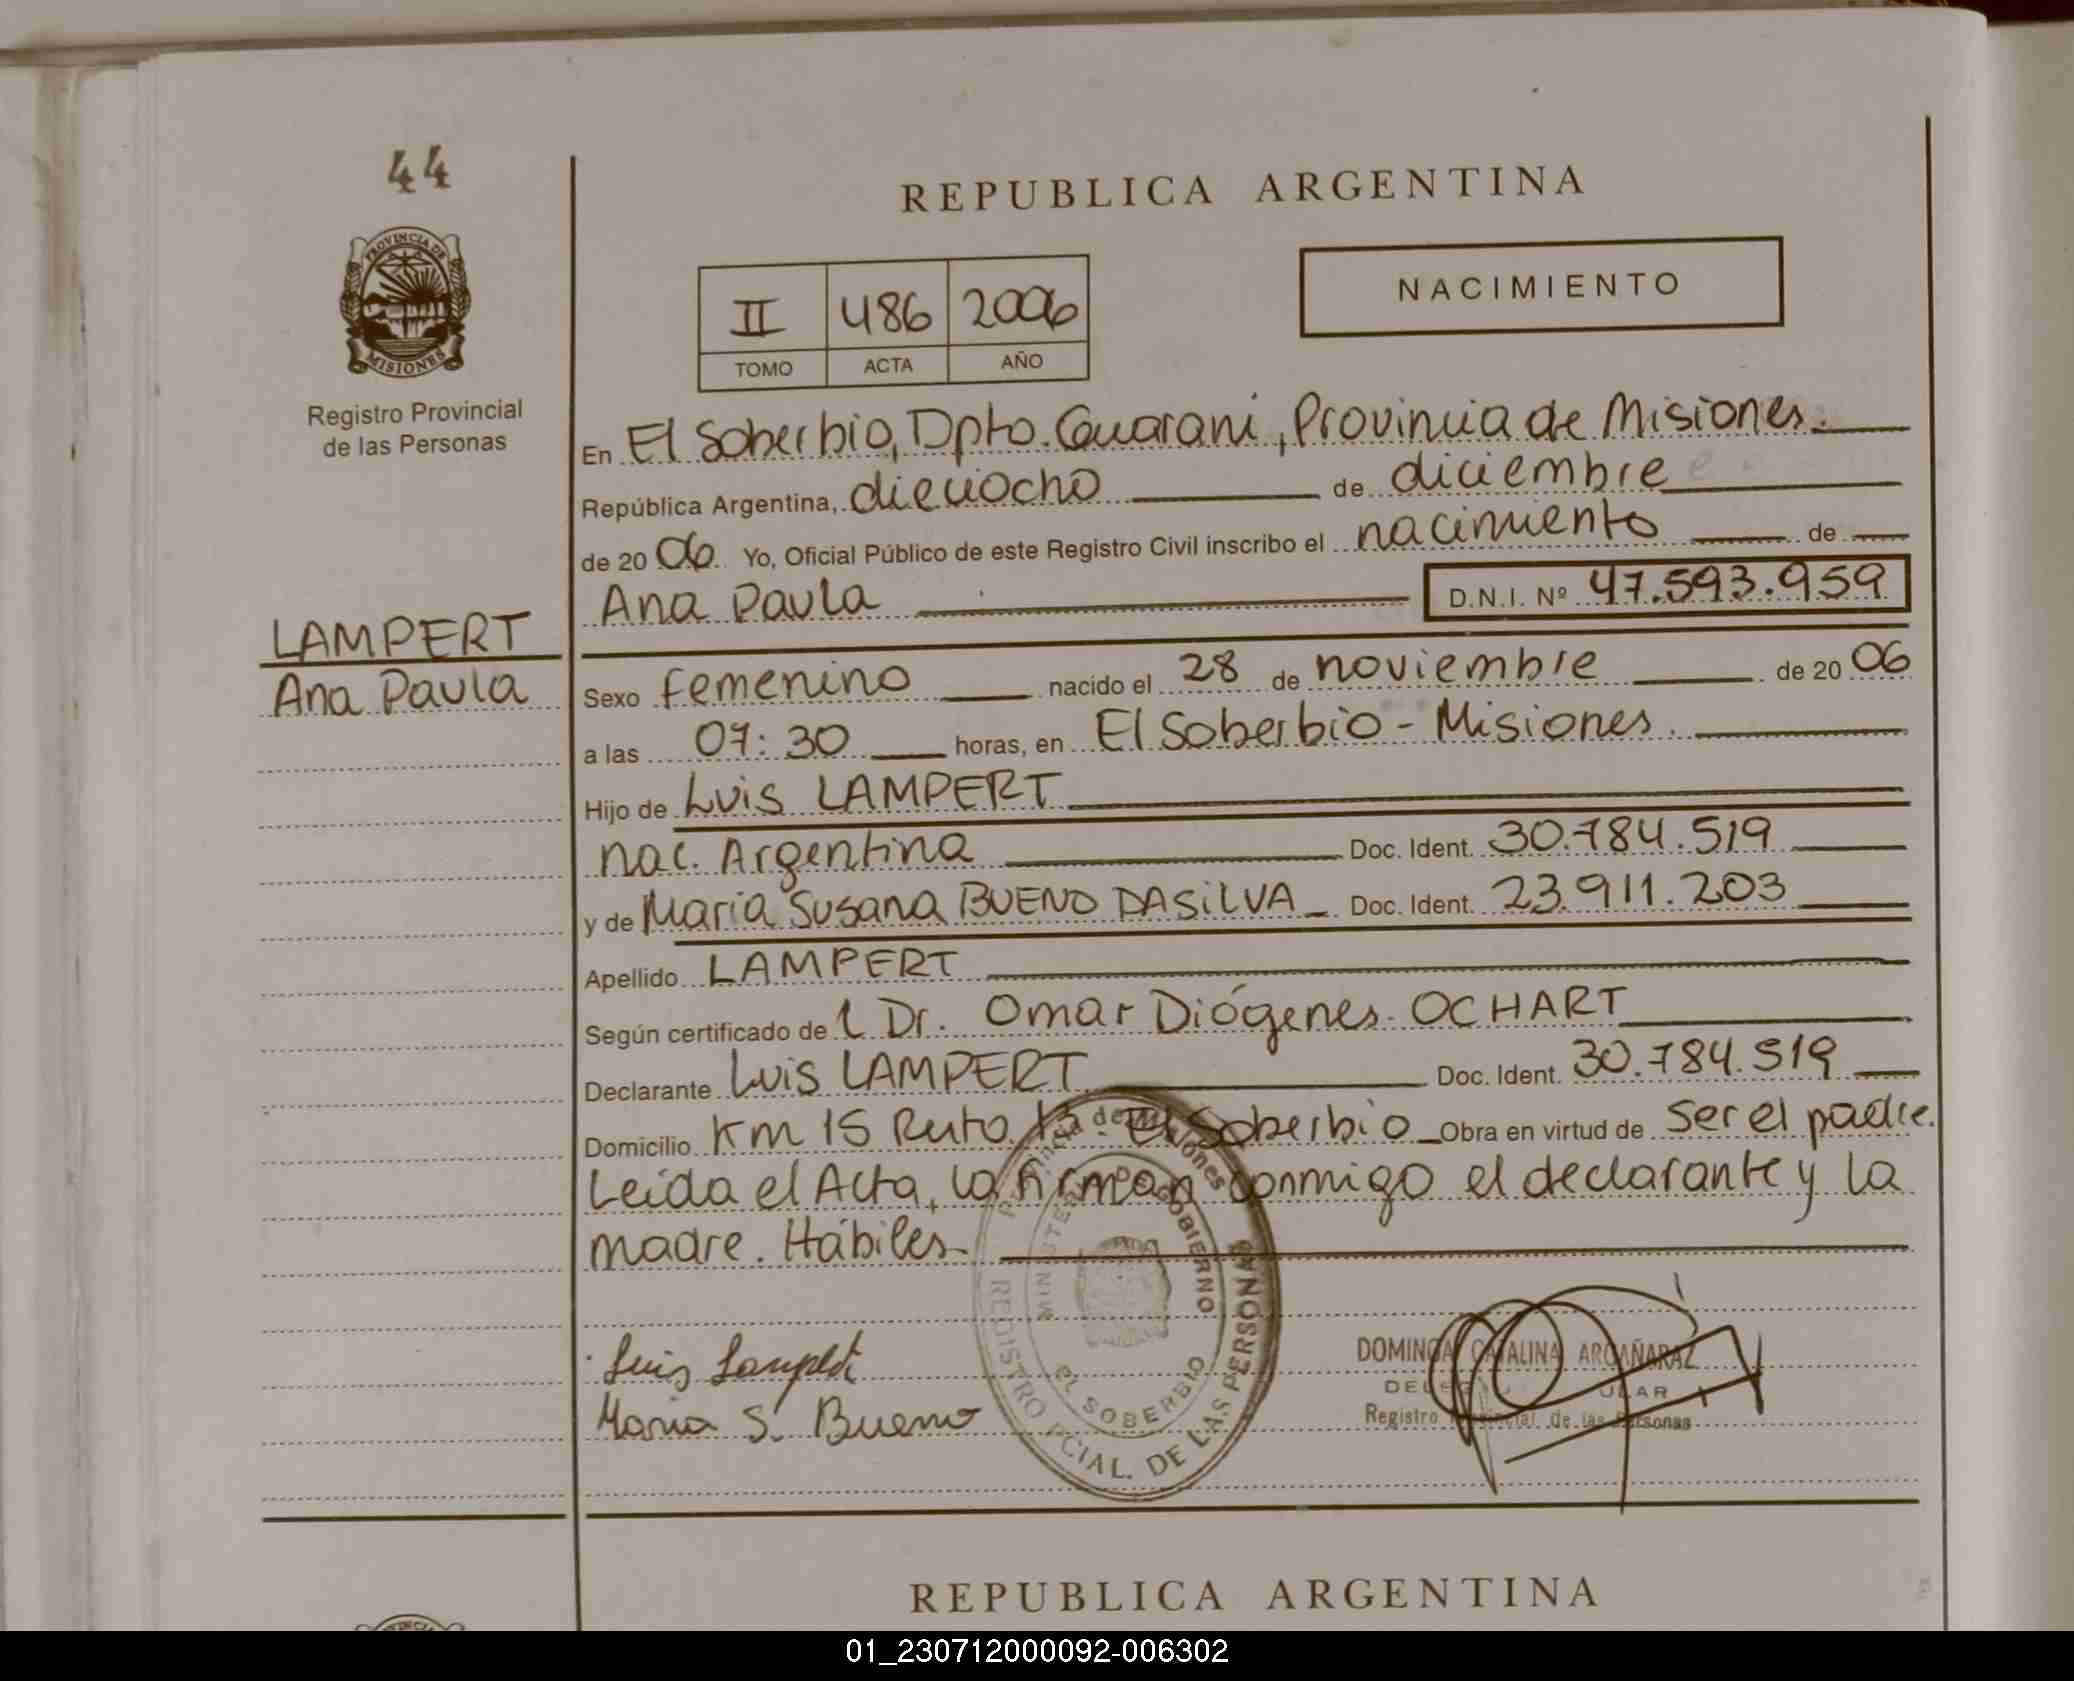 44
REPUBLICA ARGENTINA
PROVINCIA DE MISIONES
Registro Provincial
de las Personas
II 486 2006
TOMO ACTA AÑO
NACIMIENTO
En El Soberbio, Dpto. Guarani, Provincia de Misiones.
República Argentina, dieciocho de diciembre
de 20 06 Yo, Oficial Público de este Registro Civil inscribo el nacimiento de
Ana Paula D.N.I. Nº 47.593.959
LAMPERT
Ana Paula
Sexo femenino nacido el 28 de noviembre de 20 06
a las 07:30 horas, en El Soberbio - Misiones.
Hijo de Luis LAMPERT
nac. Argentina Doc. Ident. 30.784.519
y de Maria Susana BUENO DASILVA Doc. Ident. 23.911.203
Apellido LAMPERT
Según certificado de l Dr. Omar Diógenes OCHART
Declarante Luis LAMPERT Doc. Ident. 30.784.519
Domicilio Km 15 Ruta El Soberbio Obra en virtud de ser el padre.
Leída el Acta, la firman conmigo el declarante y la
madre. Hábiles.
Luis Lampert
Maria S. Bueno
Provincia de Misiones
MINISTERIO DE GOBIERNO
EL SOBERBIO
REGISTRO PCIAL. DE LAS PERSONAS
DOMINGA CATALINA ARGAÑARAZ
Registro Provincial de las Personas
REPUBLICA ARGENTINA
01_230712000092-006302